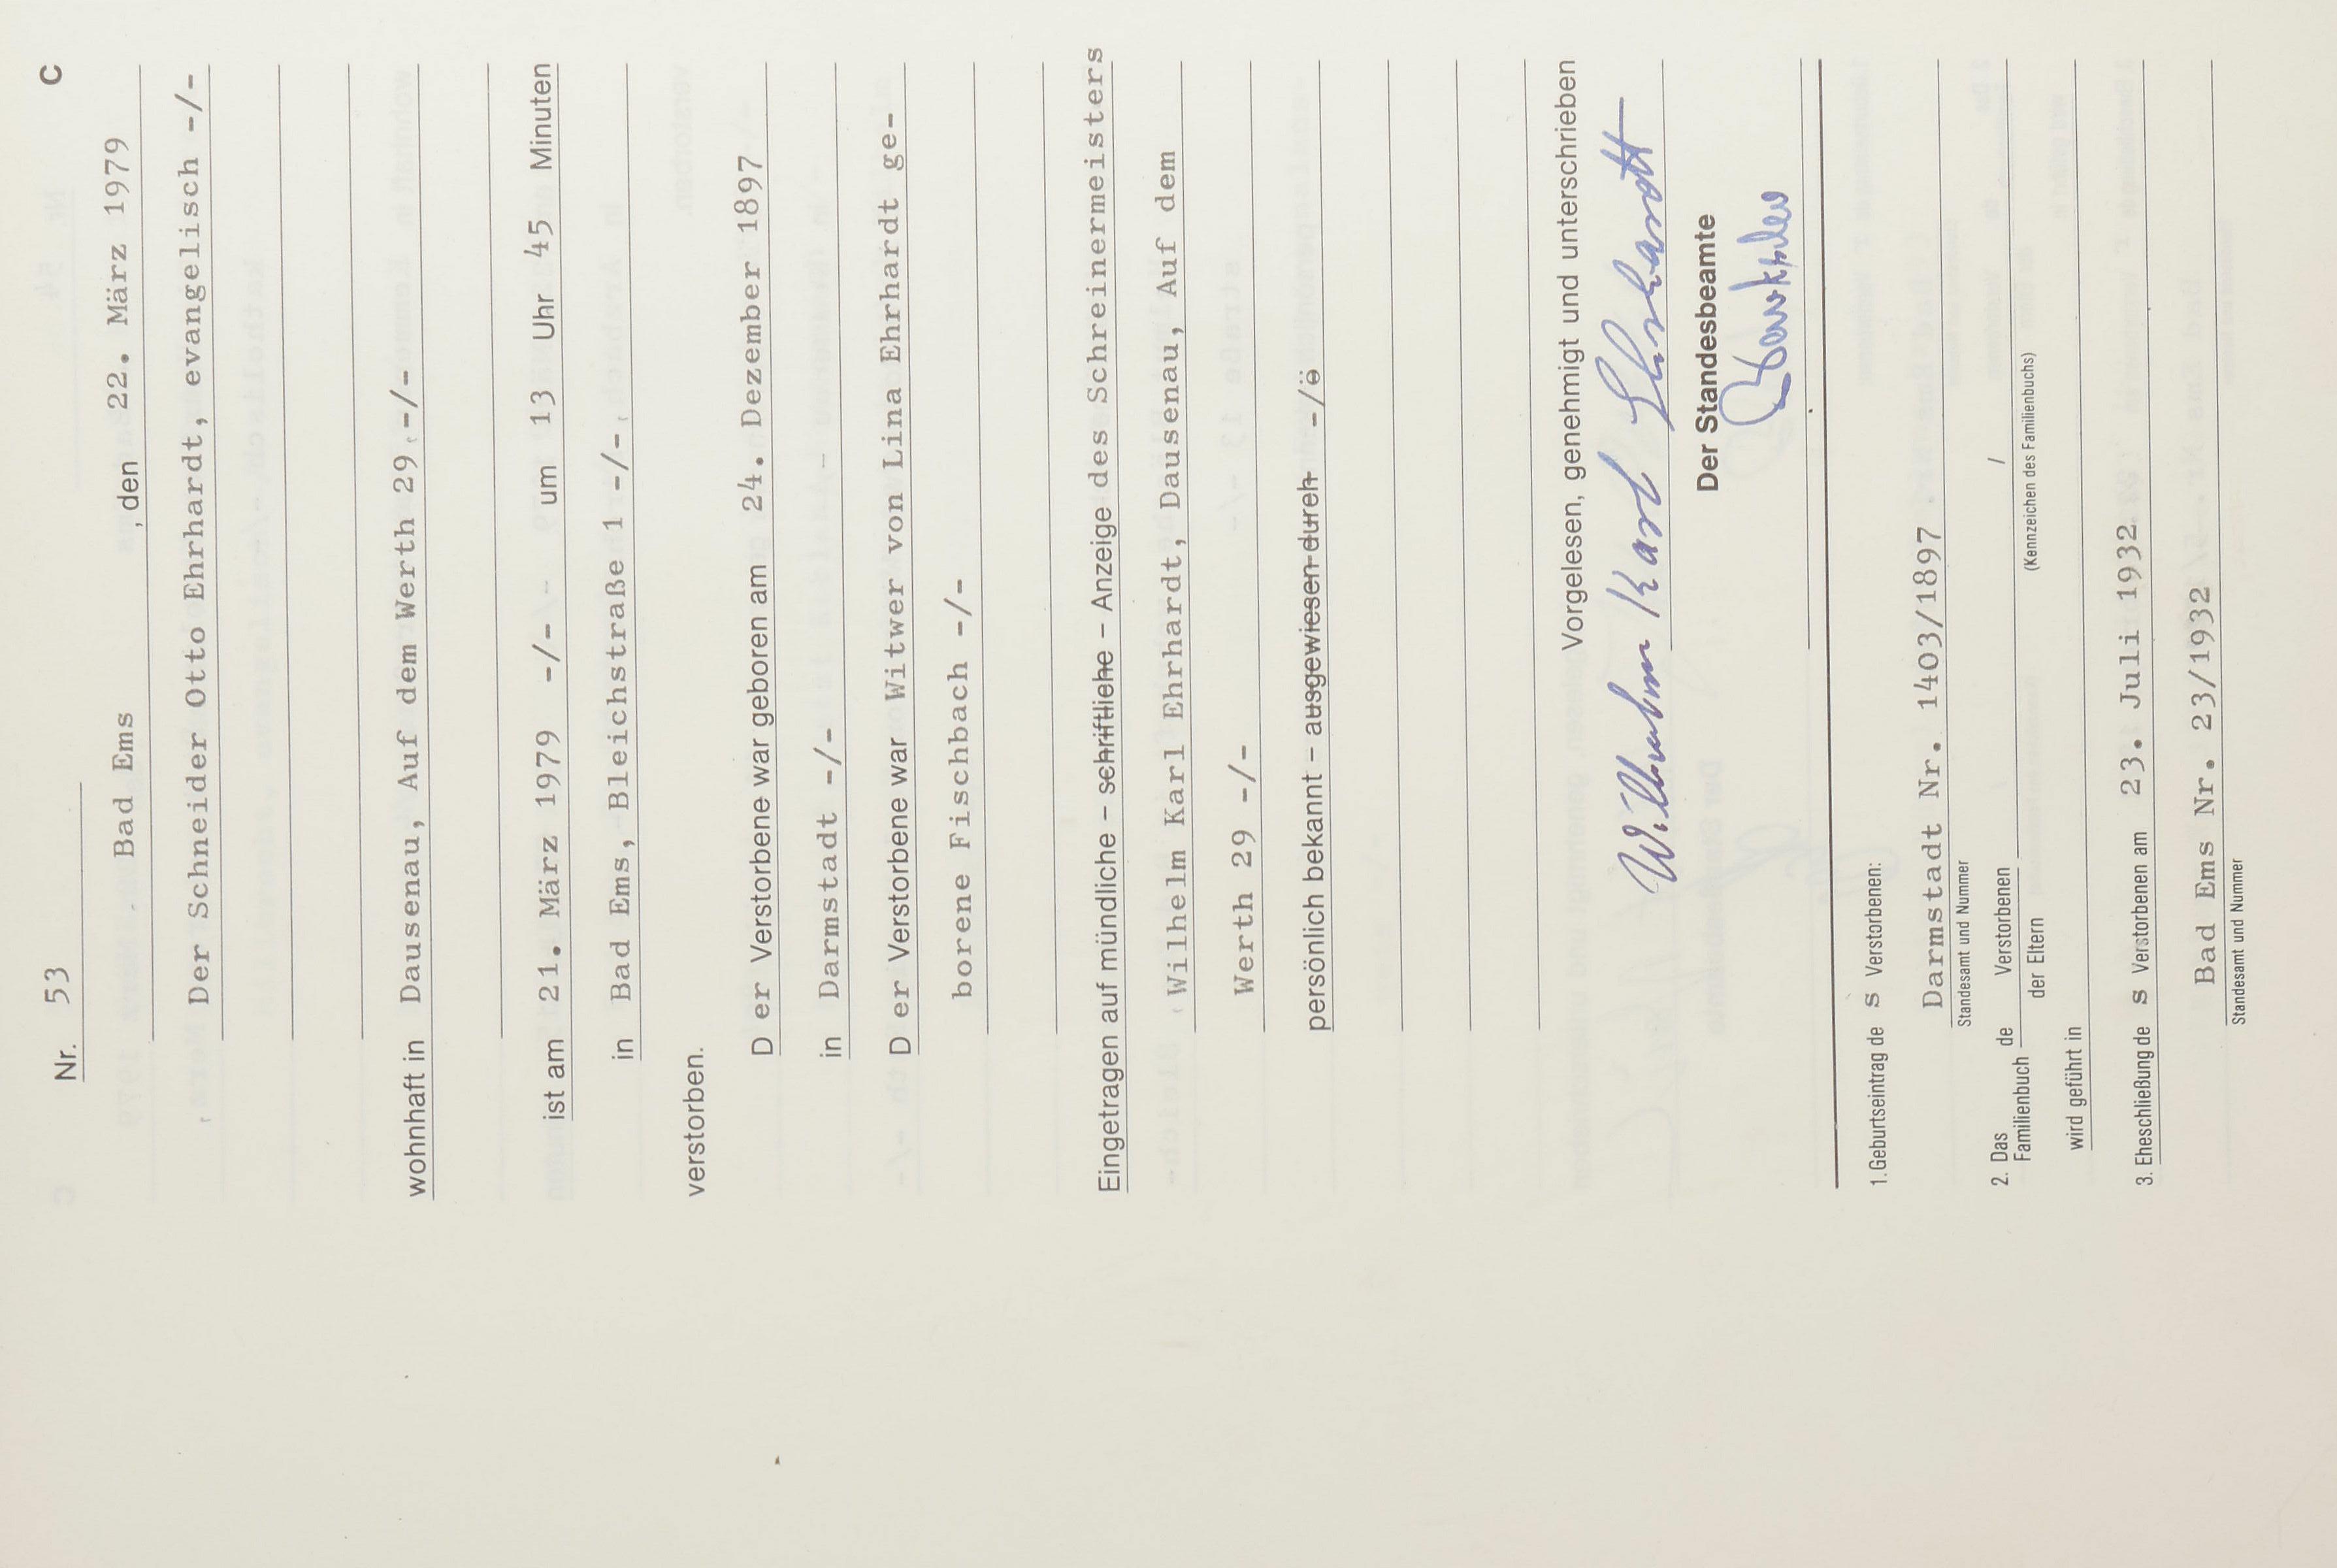 C
Nr. 53
Bad Ems , den 22. März 1979
Der Schneider Otto Ehrhardt, evangelisch -/-
wohnhaft in Dausenau, Auf dem Werth 29 -/-
ist am 21. März 1979 -/- um 13 Uhr 45 Minuten
in Bad Ems, Bleichstraße 1 -/-
verstorben.
D er Verstorbene war geboren am 24. Dezember 1897
in Darmstadt -/-
D er Verstorbene war Witwer von Lina Ehrhardt ge-
borene Fischbach -/-
Eingetragen auf mündliche – schriftliche – Anzeige des Schreinermeisters
Wilhelm Karl Ehrhardt, Dausenau, Auf dem
Werth 29 -/-
persönlich bekannt – ausgewiesen durch -/ö
Vorgelesen, genehmigt und unterschrieben
Wilhelm Karl Ehrhardt
Der Standesbeamte
1. Geburtseintrag de s Verstorbenen:
Darmstadt Nr. 1403/1897
Standesamt und Nummer
2. Das Familienbuch de Verstorbenen /
der Eltern (Kennzeichen des Familienbuchs)
wird geführt in
3. Eheschließung de s Verstorbenen am 23. Juli 1932
Bad Ems Nr. 23/1932
Standesamt und Nummer